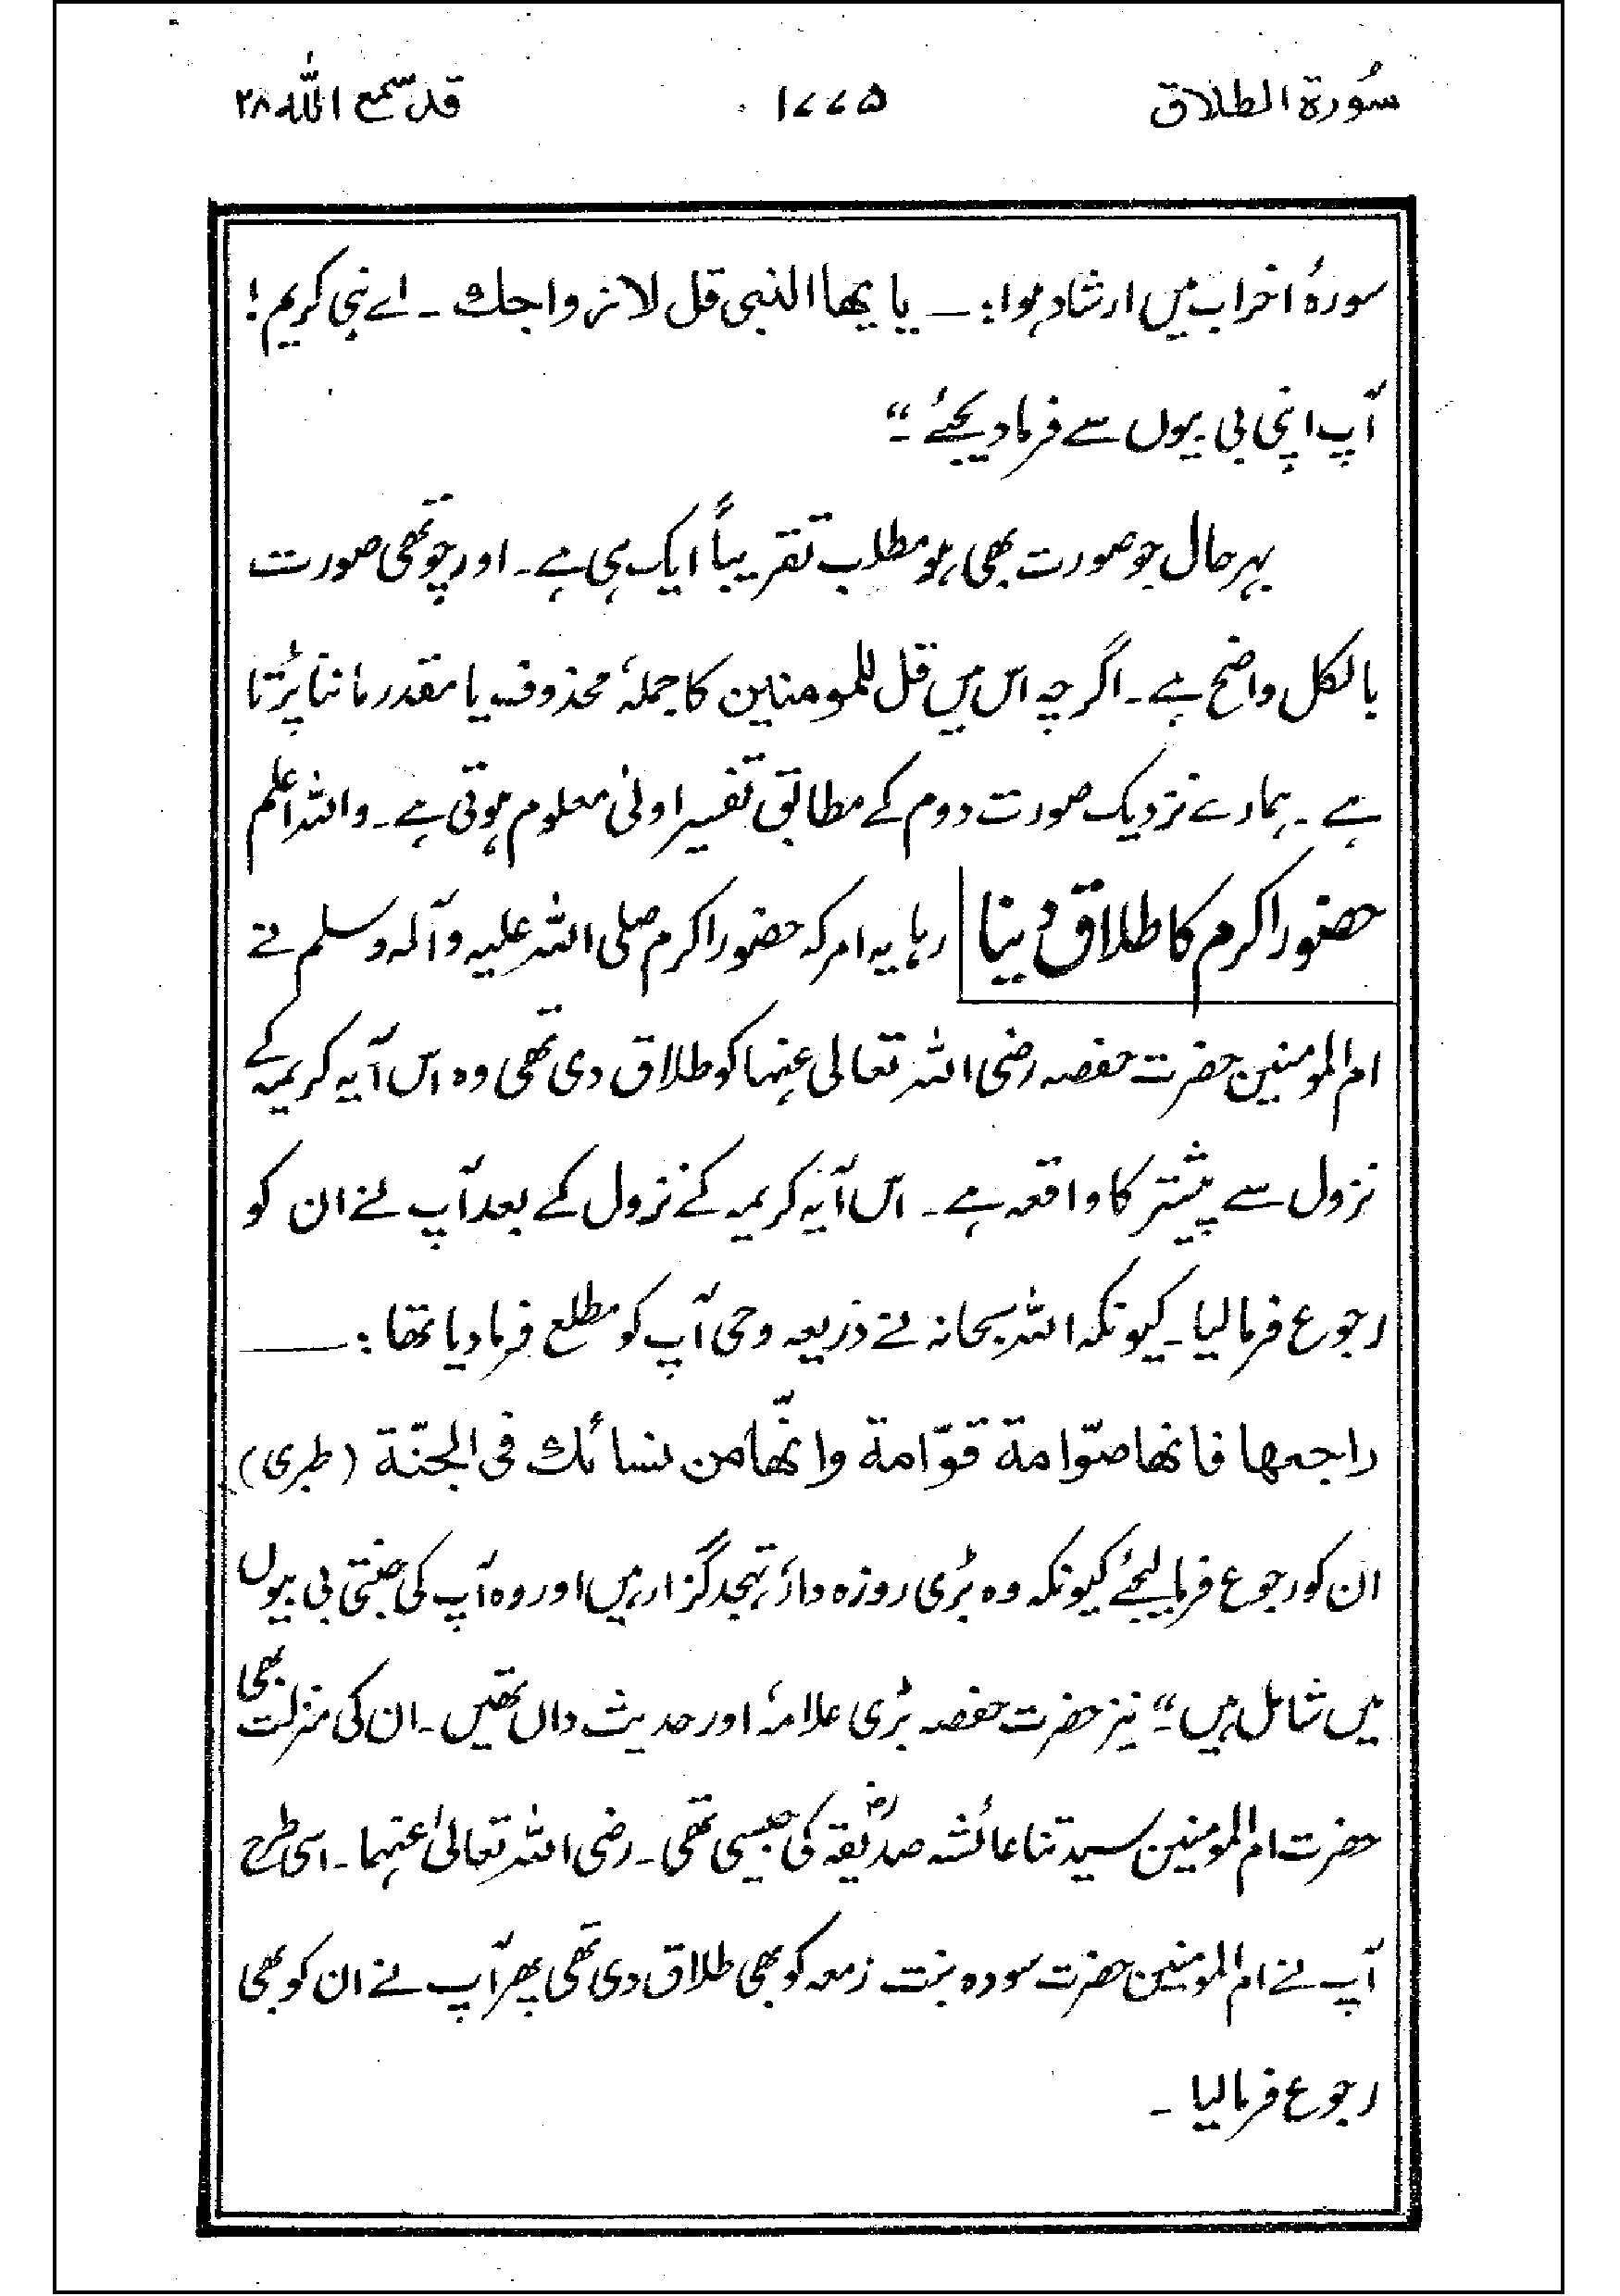 سُورة الطلاق ۱۷۷۵ قد سمع الله ۲۸
سورۂ احزاب میں ارشاد ہوا:۔ یا یھا النبی قل لازواجك ۔ اے نبی کریم!
آپ اپنی بی بیوں سے فرما دیجئے ۔"
بہر حال جو صورت بھی ہو مطلب تقریباً ایک ہی ہے۔ اور چوتھی صورت
بالکل واضح ہے۔ اگرچہ اس میں قل للمومنین کا جملہ محذوف یا مقدر ماننا پڑتا
ہے۔ ہمارے نزدیک صورت دوم کے مطابق تفسیر اولیٰ معلوم ہوتی ہے۔ واللہ اعلم
حضور اکرم کا طلاق دینا رہا یہ امر کہ حضور اکرم صلی اللہ علیہ وآلہ وسلم نے
ام المومنین حضرت حفصہ رضی اللہ تعالی عنہا کو طلاق دی تھی وہ اس آیہ کریمہ کے
نزول سے پیشتر کا واقعہ ہے۔ اس آیہ کریمہ کے نزول کے بعد آپ نے ان کو
رجوع فرما لیا۔ کیونکہ اللہ سبحانہ نے ذریعہ وحی آپ کو مطلع فرما دیا تھا:۔
راجعھا فانھا صوّامة قوّامة وانّھا من نسائك فی الجنّة (طبری)
ان کو رجوع فرما لیجئے کیونکہ وہ بڑی روزہ دار، تہجد گزار ہیں اور وہ آپ کی جنتی بی بیوں
میں شامل ہیں۔" نیز حضرت حفصہ بڑی علامہ اور حدیث داں تھیں۔ ان کی منزلت بھی
حضرت ام المومنین سیدتنا عائشہ صدیقہؓ کی جیسی تھی۔ رضی اللہ تعالیٰ عنہما۔ اسی طرح
آپ نے ام المومنین حضرت سودہ بنت زمعہ کو بھی طلاق دی تھی پھر آپ نے ان کو بھی
رجوع فرما لیا ۔